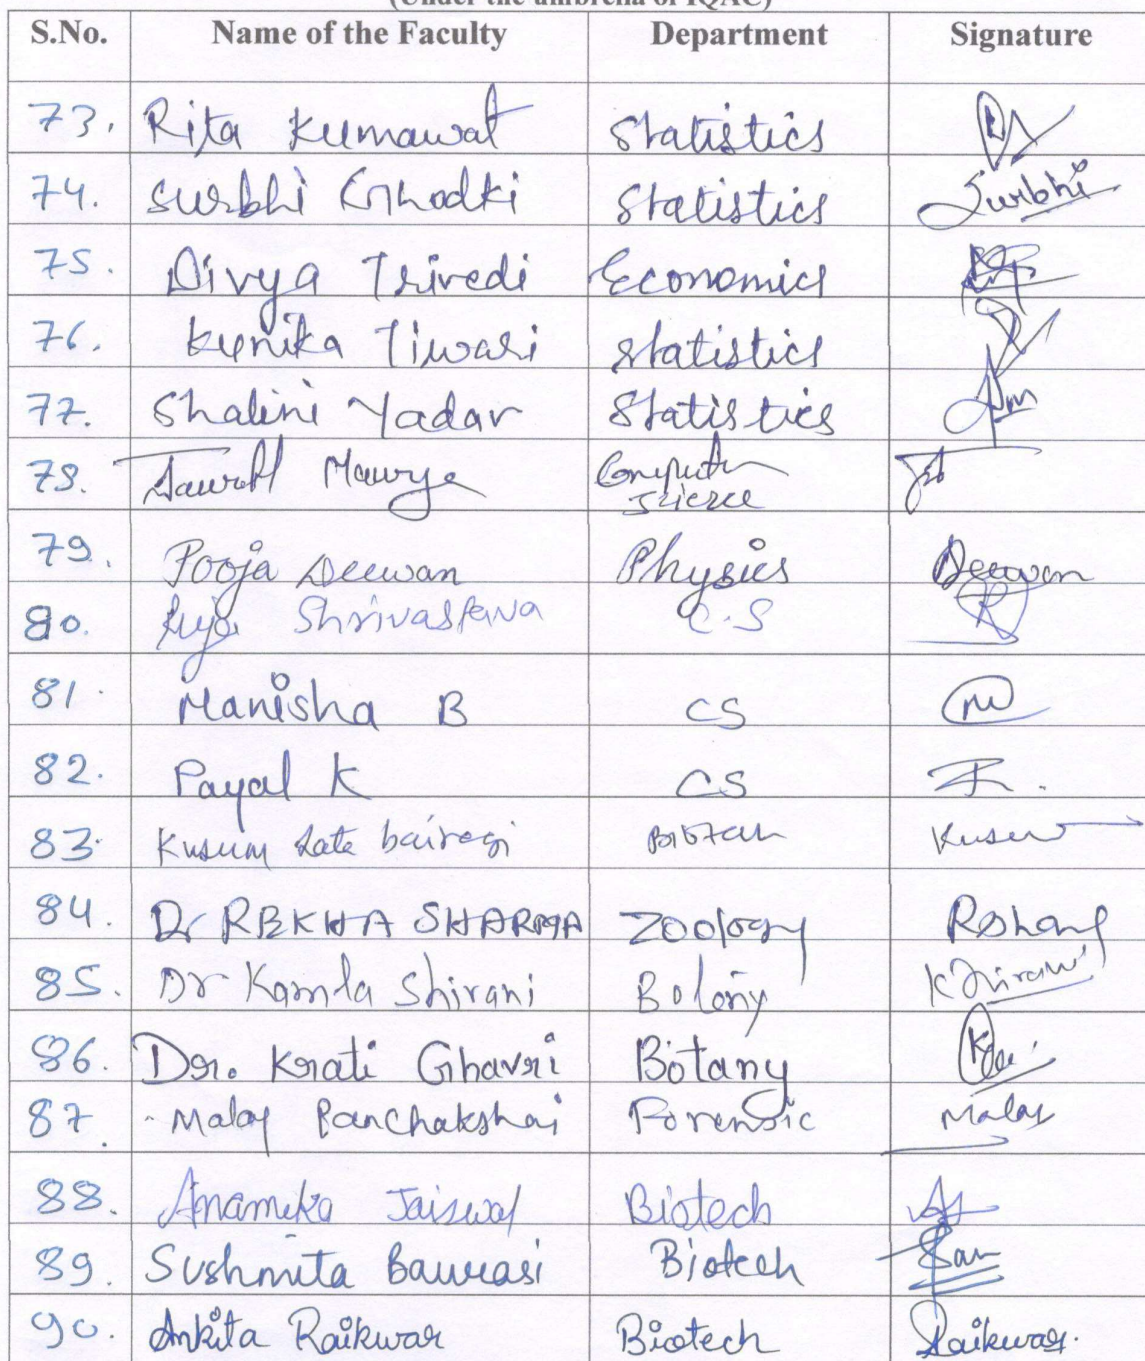 (Under the umbrella of IQAC)
S.No. Name of the Faculty Department Signature
73. Rita Kumawat Statistics
74. Surbhi Ghodki Statistics Surbhi
75. Divya Trivedi Economics
76. Kunika Tiwari Statistics
77. Shalini Yadav Statistics
78. Saurabh Maurya Computer Science
79. Pooja Deewan Physics Deewan
80. Shrivastava C.S
81. Manisha B CS
82. Payal K CS
83. Kusum Lata bairagi Biotech Kusum
84. Dr REKHA SHARMA Zoology
85. Dr Kamla Shirani Botany
86. Dr. Krati Ghavri Botany
87. Malay Panchakshai Forensic Malay
88. Anamika Jaiswal Biotech
89. Sushmita Baurasi Biotech
90. Ankita Raikwar Biotech Raikwar.